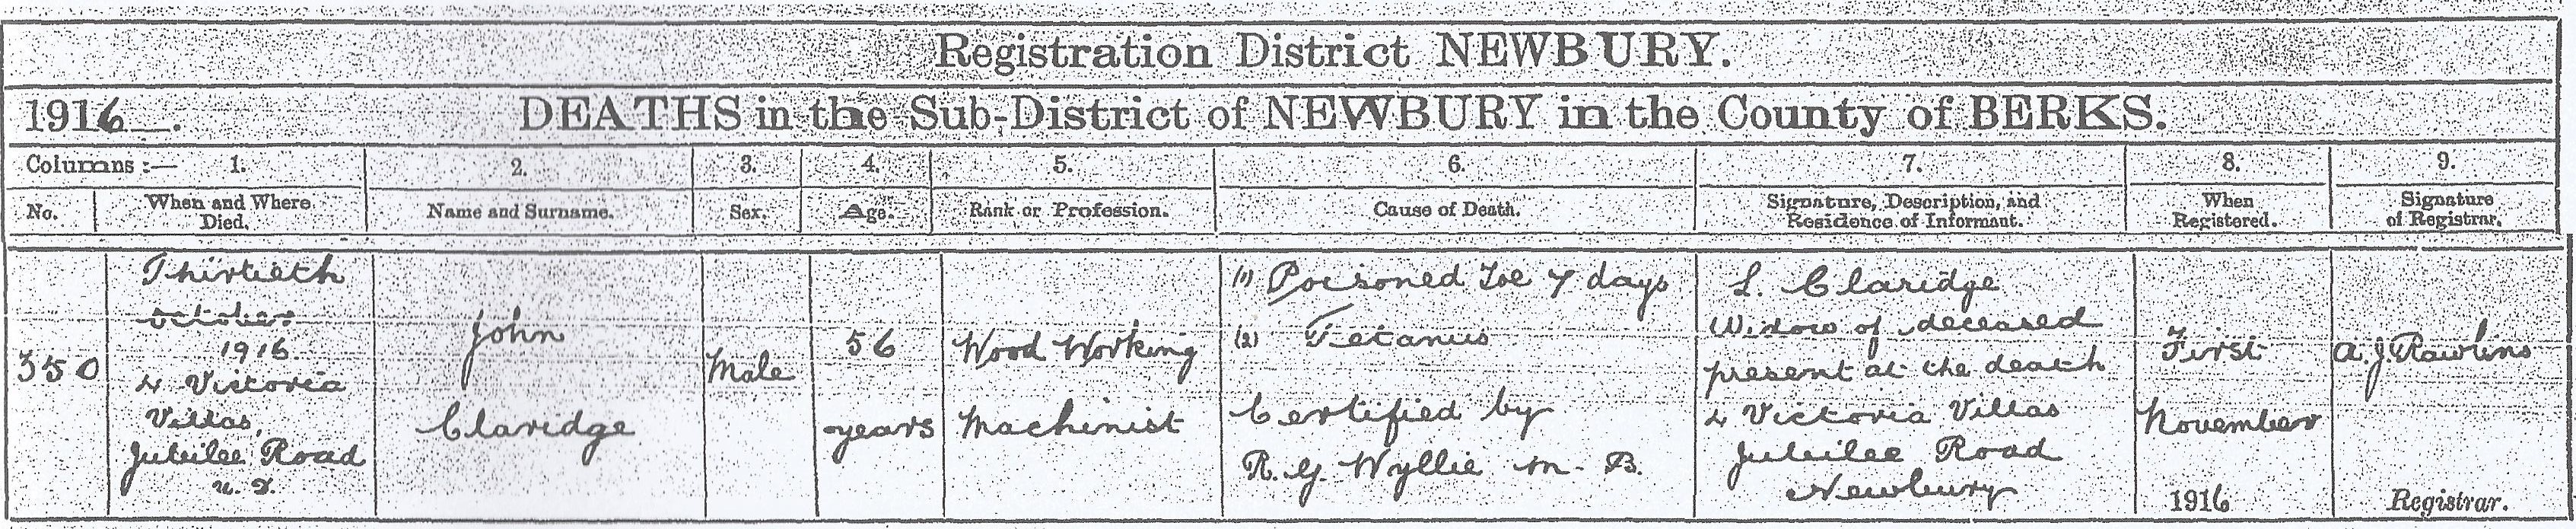 Registration District NEWBURY.
1916. DEATHS in the Sub-District of NEWBURY in the County of BERKS.
Columns :— 1. 2. 3. 4. 5. 6. 7. 8. 9.
No.
When and Where
Died.
Name and Surname.
Sex.
Age.
Rank or Profession.
Cause of Death.
Signature, Description, and
Residence of Informant.
When
Registered.
Signature
of Registrar.
350
Thirtieth
October
1916
4 Victoria
Villas,
Jubilee Road
U. D.
John
Claridge
Male
56
years
Wood Working
Machinist
(1) Poisoned Toe 7 days
(2) Tetanus
Certified by
R. G. Wyllie M. B.
L. Claridge
Widow of deceased
present at the death
4 Victoria Villas
Jubilee Road
Newbury
First
November
1916
A. J. Rawlins
Registrar.